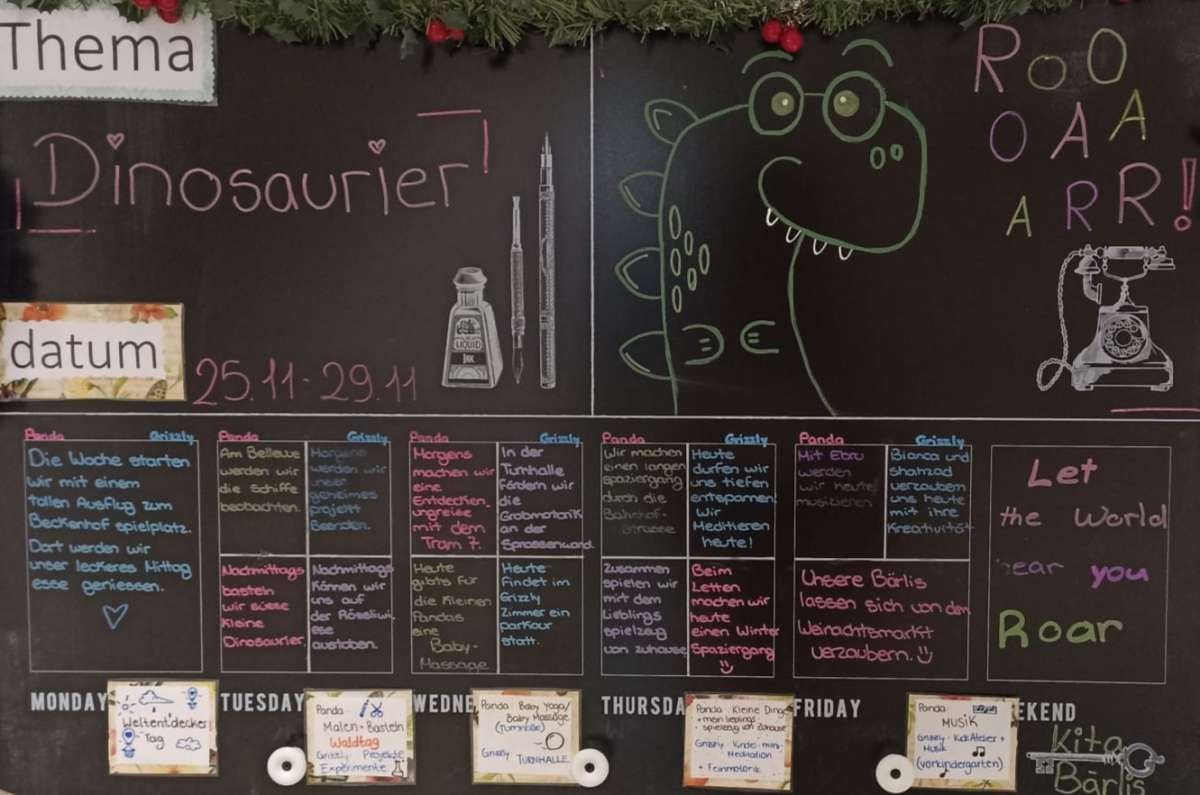 Thema
Dinosaurier
datum
25.11-29.11
LIQUID
INK
ROO
OAA
ARR!
Panda
Grizzly
Die Woche starten
wir mit einem
tollen Ausflug zum
Beckenhof spielplatz.
Dort werden wir
unser leckeres Mittag
esse geniessen.
Panda
Grizzly
Am Bellevue
werden wir
die Schiffe
beobachten.
Morgens
werden wir
unser
geheimes
projekt
Beenden.
Nachmittags
basteln
wir süsse
kleine
Dinosaurier.
Nachmittags
können wir
uns auf
der Rössliwi
ese
austoben.
Panda
Grizzly
Morgens
machen wir
eine
Entdecken
ungreise
mit dem
Tram 7.
In der
Turnhalle
fördern wir
die
Grobmotorik
an der
Sprossenwand.
Heute
gibts für
die kleinen
Pandas
eine
Baby-
Massage
Heute
findet im
Grizzly
Zimmer ein
parkour
statt.
Panda
Grizzly
Wir machen
einen langen
spaziergang
durch die
Bahnhof-
strasse
Heute
durfen wir
uns tiefen
entspannen
Wir
Meditieren
heute!
Zusammen
spielen wir
mit dem
Lieblings
spielzeug
von zuhause
Beim
Letten
machen wir
heute
einen Winter
Spaziergang
Panda
Grizzly
Mit Ebru
werden
wir heute
musizieren
Bianca und
shahzad
verzauben
uns heute
mit ihre
Kreativität
Unsere Bärlis
lassen sich von dem
Weinachtsmarkt
verzaubern.
Let
the World
ear you
Roar
MONDAY
TUESDAY
WEDNE
THURSDA
FRIDAY
EKEND
Weltentdecker
Tag
Panda
Malen + Basteln
Waldtag
Grizzly Projekte
Experimente
Panda Baby Yoga/
Baby Massage
(Turnhalle)
Grizzly TURNHALLE
Panda Kleine Ding
+ mein lieblings
spielzeug von zuhause
Grizzly Kinder mini
Meditation
+ Feinmotorik
Panda
MUSIK
Grizzly KidsAtelier +
Musik
(vorkindergarten)
Kita
Bärlis